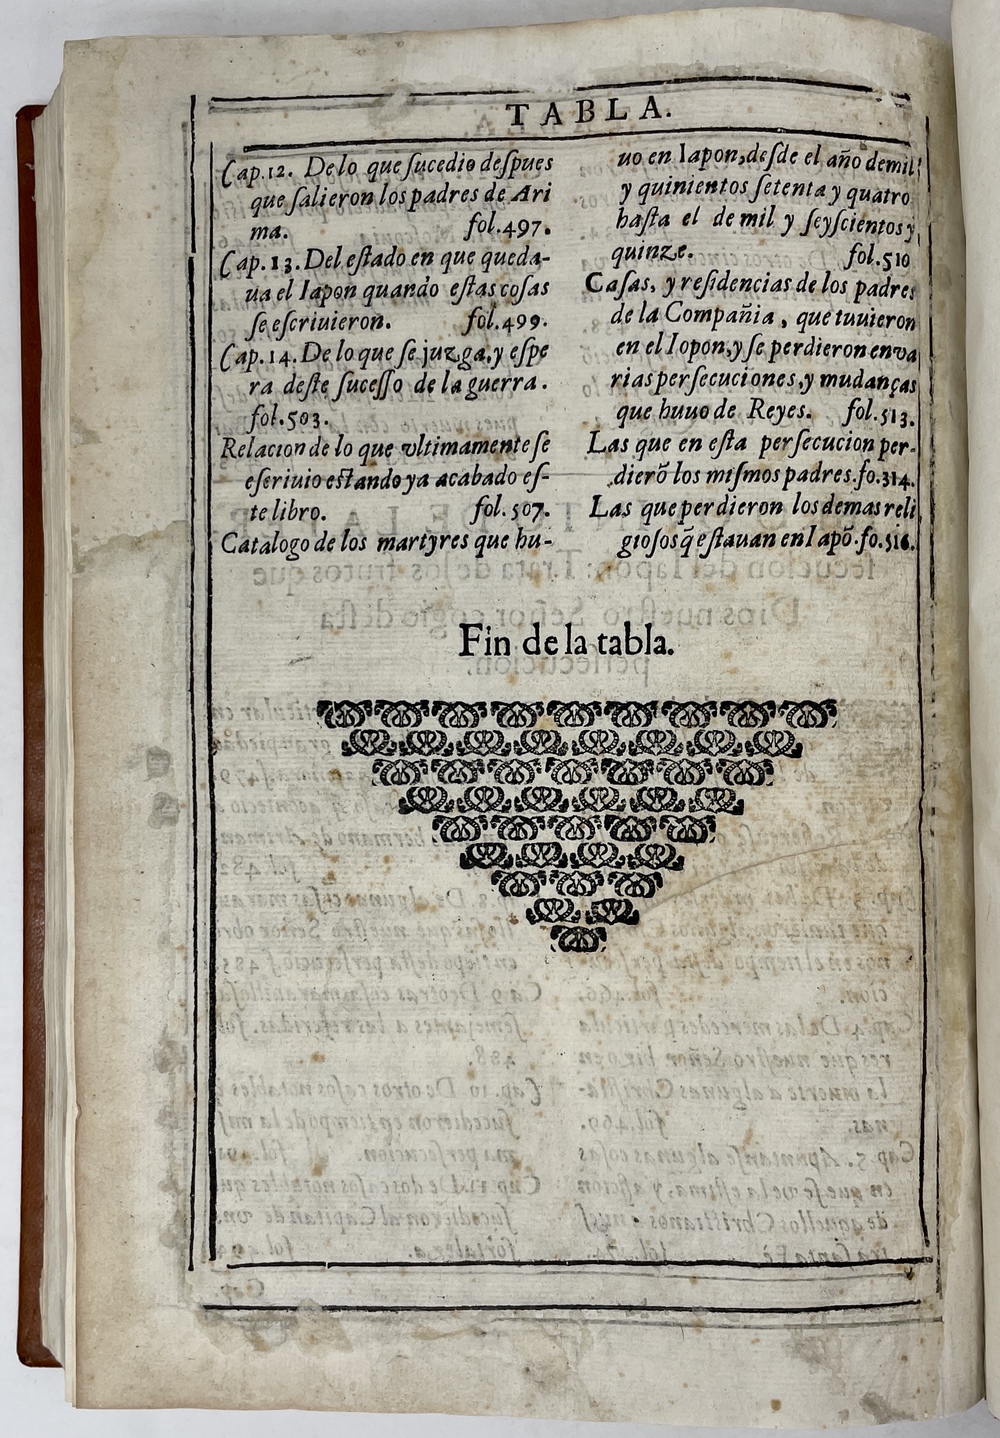 TABLA.
Cap.12. De lo que ſucedio deſpues
que ſalieron los padres de Ari
ma. fol.497.
Cap.13. Del eſtado en que queda-
ua el Iapon quando eſtas coſas
ſe eſcriuieron. fol.499.
Cap.14. De lo que ſe juzga, y eſpe
ra deſte ſuceſſo de la guerra.
fol.503.
Relacion de lo que vltimamente ſe
eſeriuio eſtando ya acabado eſ-
te libro. fol.507.
Catalogo de los martyres que hu-
uo en Iapon, deſde el año de mil
y quinientos ſetenta y quatro
haſta el de mil y ſeyſcientos y
quinze. fol.510
Caſas, y reſidencias de los padres
de la Compañia, que tuuieron
en el Iopon, y ſe perdieron en va
rias perſecuciones, y mudanças
que huuo de Reyes. fol.513.
Las que en eſta perſecucion per-
dierõ los miſmos padres.fo.314.
Las que perdieron los demas reli
gioſos q̃ eſtauan en Iapõ.fo.516.
Fin de la tabla.